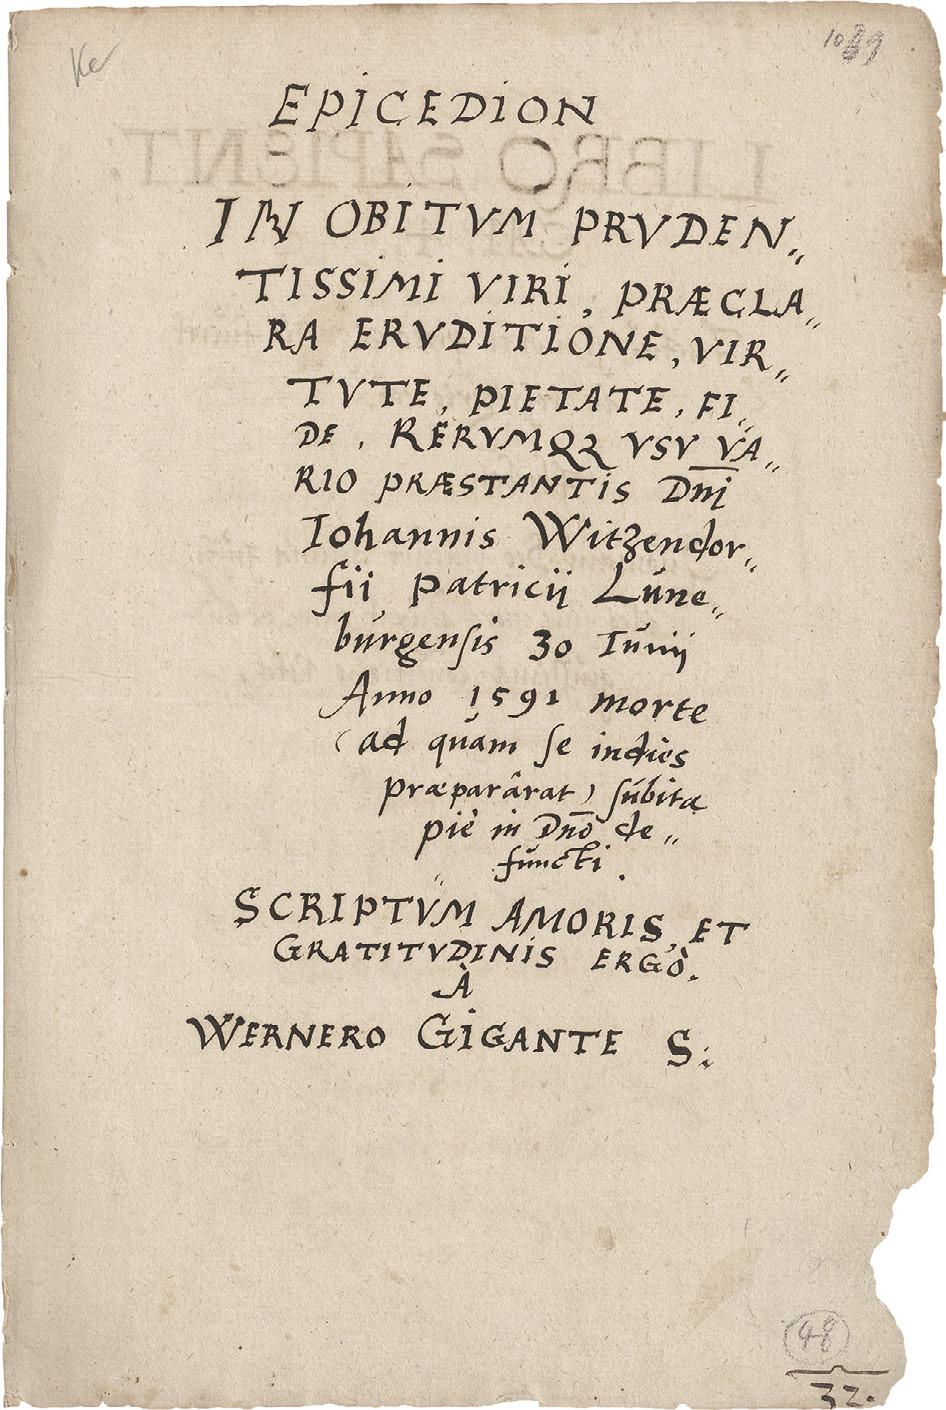 Ke
EPICEDION
IN OBITVM PRVDEN„
TISSIMI VIRI, PRÆCLA„
RA ERVDITIONE, VIR„
TVTE, PIETATE, FI„
DE, RERVMQꝪ VSV VA„
RIO PRÆSTANTIS Dn̄i
Iohannis Witzendor„
fii Patricij Lúne„
búrgensis 30 Iúnij
Anno 1591 morte
(ad quàm se indies
præparârat) súbita
piè in Dn̄o de„
functi.
SCRIPTVM AMORIS, ET
GRATITVDINIS ERGÒ.
À
WERNERO GIGANTE S:
48
32.